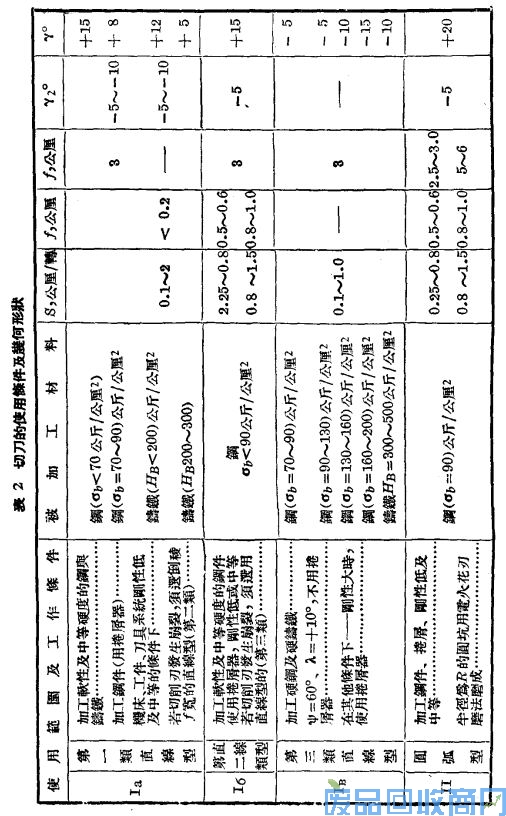 表 2 切刀的使用條件及幾何形狀
使用範圍及工作條件 被加工材料 S,公厘/轉 f,公厘 f,公厘 γ₂° γ°
Iа
第一類直線型
加工軟性及中等硬度的鋼與
鑄鐵
加工鋼件(用捲屑器)
機床、工件、刀具系統剛性低
及中等的條件下
若切削刃發生崩裂,須選倒稜
f寬的直線型(第二類)
鋼(σb<70公斤/公厘²)
鋼(σb=70~90)公斤/公厘²
鑄鐵(HB<200)公斤/公厘²
鑄鐵(HB200~300)
0.1~2
<0.2
3
—
-5~-10
-5~-10
+15
+8
+12
+5
Iб
第二類直線型
加工軟性及中等硬度的鋼件
使用捲屑器,剛性低或中等
若切削刃發生崩裂,須選用
直線型的(第三類)
鋼
σb<90公斤/公厘²
2.25~0.8
0.8~1.5
0.5~0.6
0.8~1.0
3
-5
+15
Iв
第三類直線型
加工硬鋼及硬鑄鐵
ψ=60° λ=+10°,不用捲
屑器
在其他條件下——剛性大時,
使用捲屑器
鋼(σb=70~90)公斤/公厘²
鋼(σb=90~130)公斤/公厘²
鋼(σb=130~160)公斤/公厘²
鋼(σb=160~200)公斤/公厘²
鑄鐵HB=300~500公斤/公厘²
0.1~1.0
—
3
—
-5
-5
-10
-15
-10
II
圓弧型
加工鋼件、捲屑、剛性低及
中等
半徑為R的圓坑用電火花刃
磨法磨成
鋼(σb=90)公斤/公厘²
0.25~0.8
0.8~1.5
0.5~0.6
0.8~1.0
2.5~3.0
5~6
-5
+20
废品回收商网